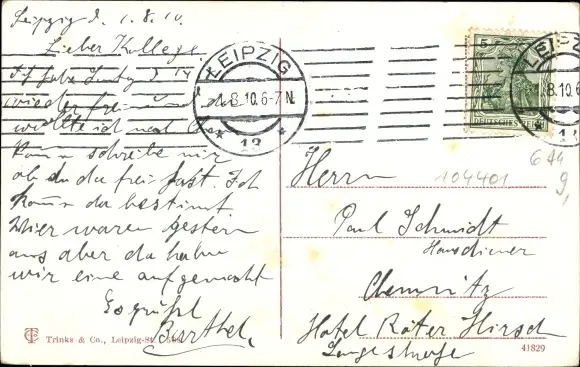 Leipzig d. 1.8.10.
Lieber Kollege
Ich habe Sonntag d. 14
wieder frei und
wollte ich nach
komm schreibe mir
ob du da frei hast. Ich
komm da bestimmt.
Wir waren gestern
aus aber da haben
wir eine aufgemacht
Es grüßt
Barthel.
Trinks & Co., Leipzig-St.
LEIPZIG
1.8.10.6-7N.
* 13 *
LEIPZIG
8.10.6
13
5
DEUTSCHES REICH
644
104401
9,
Herrn
Paul Schmidt
Hausdiener
Chemnitz
Hotel Roter Hirsch
Langestraße
41829